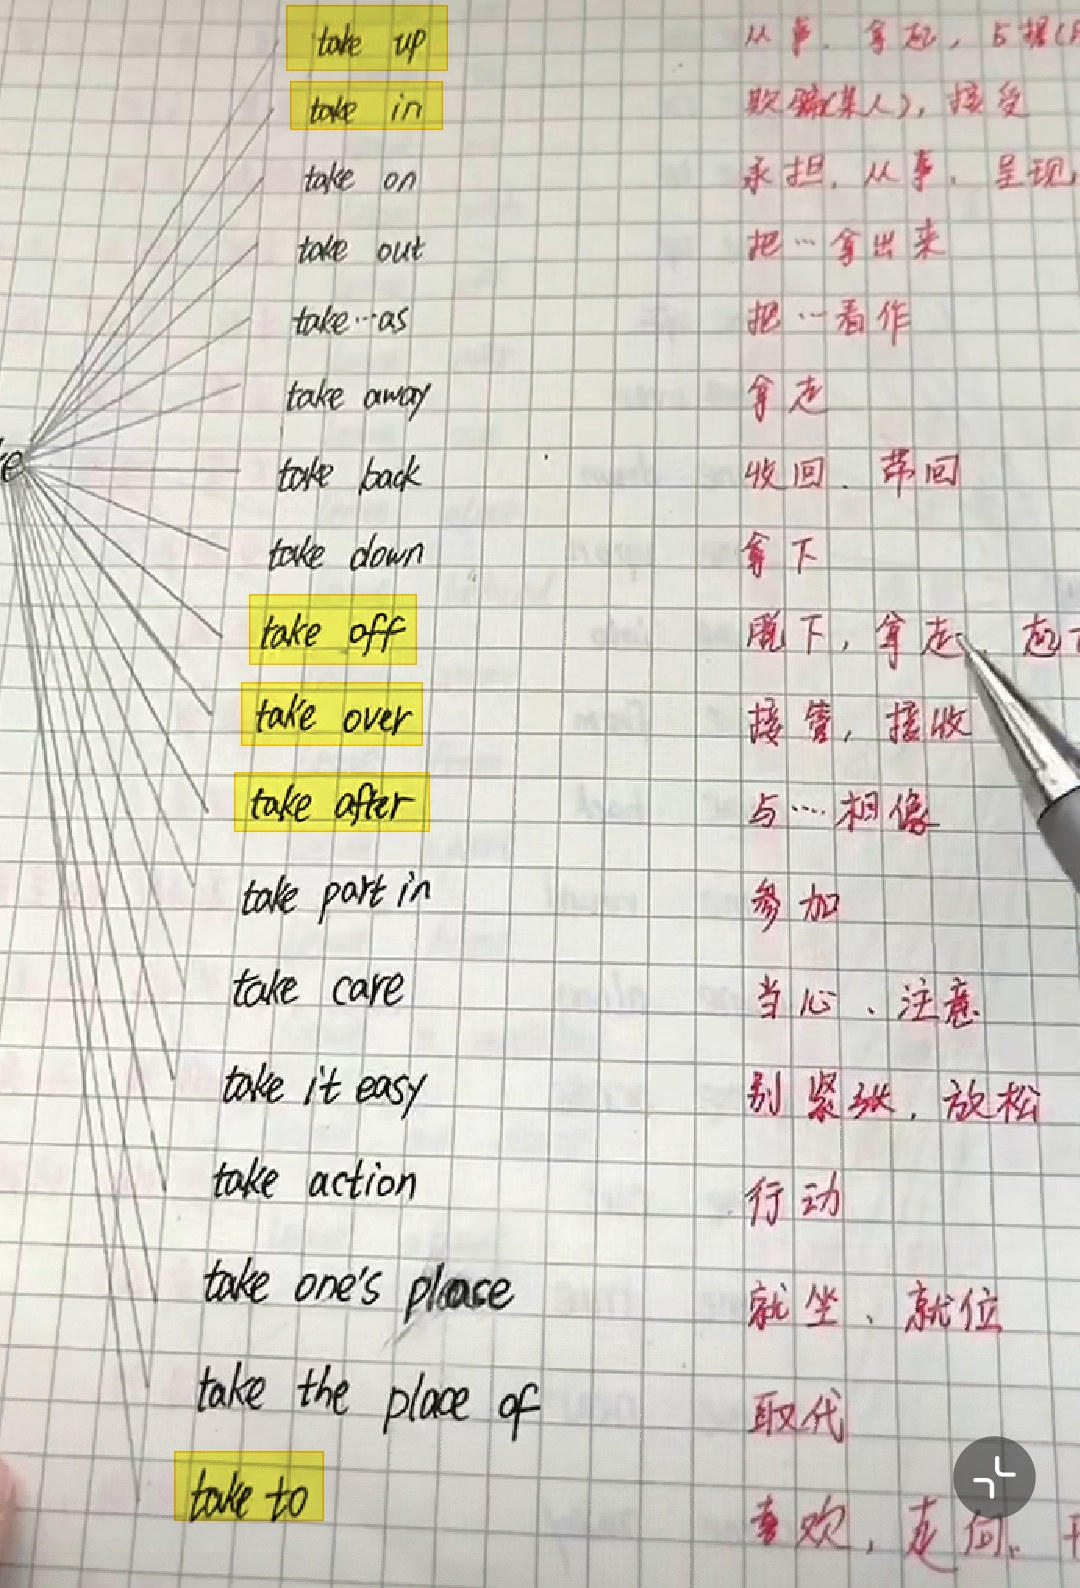 take up 从事. 拿起, 占据(
take in 欺骗(某人), 接受
take on 承担. 从事. 呈现,
take out 把…拿出来
take…as 把…看作
take away 拿走
take back 收回. 带回
take down 拿下
take off 脱下, 拿走. 起
take over 接管, 接收
take after 与…相像
take part in 参加
take care 当心、注意
take it easy 别紧张, 放松
take action 行动
take one's place 就坐、就位
take the place of 取代
take to 喜欢, 走向.